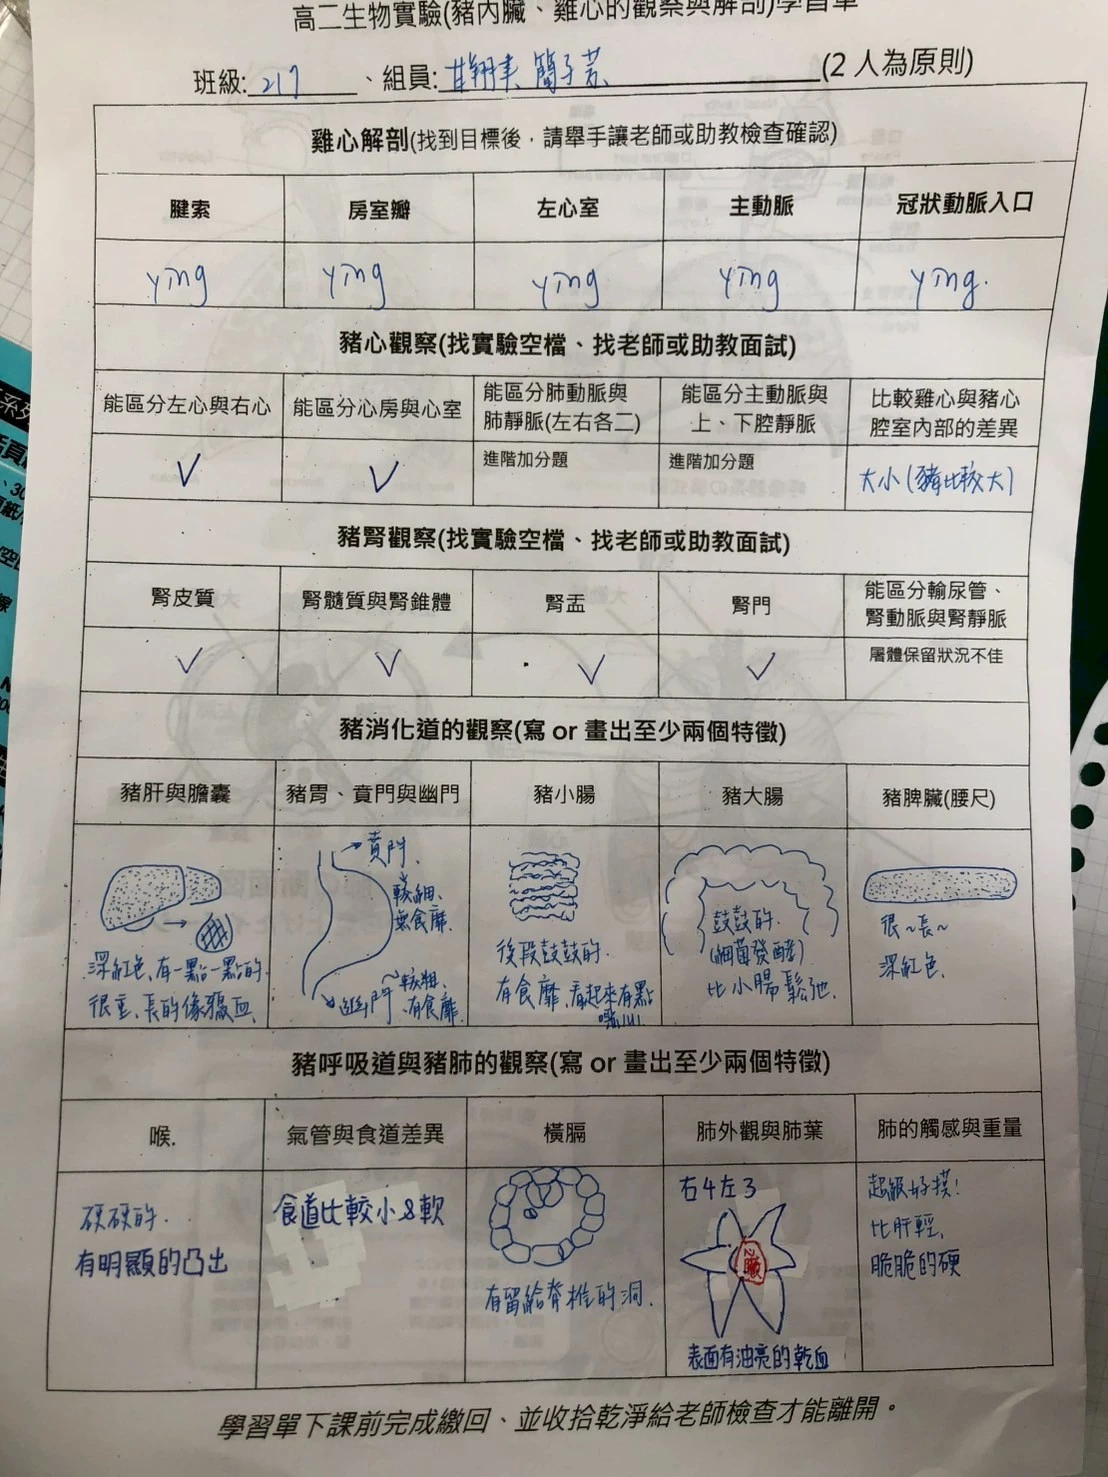 高二生物實驗(豬內臟、雞心的觀察與解剖)學習單
班級: 217 、組員: 甘翔 簡子芸 (2 人為原則)
雞心解剖(找到目標後，請舉手讓老師或助教檢查確認)
腱索 房室瓣 左心室 主動脈 冠狀動脈入口
ying ying ying ying ying.
豬心觀察(找實驗空檔、找老師或助教面試)
能區分左心與右心 能區分心房與心室 能區分肺動脈與 能區分主動脈與 比較雞心與豬心
肺靜脈(左右各二) 上、下腔靜脈 腔室內部的差異
進階加分題 進階加分題 大小(豬比較大)
豬腎觀察(找實驗空檔、找老師或助教面試)
腎皮質 腎髓質與腎錐體 腎盂 腎門 能區分輸尿管、
腎動脈與腎靜脈
屠體保留狀況不佳
豬消化道的觀察(寫 or 畫出至少兩個特徵)
豬肝與膽囊 豬胃、賁門與幽門 豬小腸 豬大腸 豬脾臟(腰尺)
深紅色、有一點一點的
很重、長的像豬血
賁門
較細、
無食糜.
幽門
較粗、
有食糜.
後段鼓鼓的.
有食糜,看起來有點
鼓鼓的.
(細菌發酵)
比小腸鬆弛.
很~長~
深紅色.
豬呼吸道與豬肺的觀察(寫 or 畫出至少兩個特徵)
喉. 氣管與食道差異 橫膈 肺外觀與肺葉 肺的觸感與重量
硬硬的.
有明顯的凸出
食道比較小&軟
有留給脊椎的洞.
右4左3
心臟
表面有油亮的乾血
超級好摸!
比肝輕,
脆脆的硬
學習單下課前完成繳回、並收拾乾淨給老師檢查才能離開。